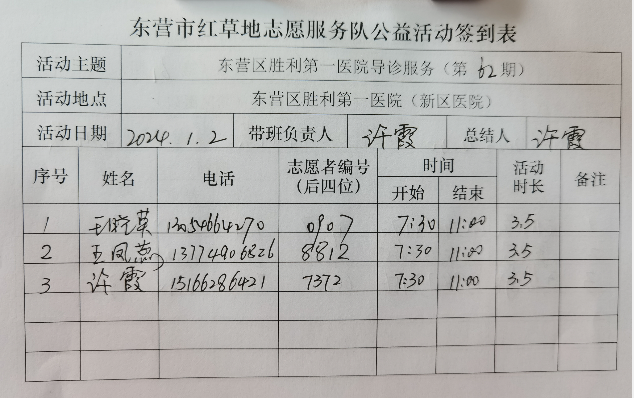 东营市红草地志愿服务队公益活动签到表
活动主题 东营区胜利第一医院导诊服务（第62期）
活动地点 东营区胜利第一医院（新区医院）
活动日期 2024.1.2 带班负责人 许霞 总结人 许霞
序号 姓名 电话 志愿者编号（后四位） 时间 开始 结束 活动时长 备注
1 王晓英 13054664270 0907 7:30 11:00 3.5
2 王凤蕊 13774906826 8812 7:30 11:00 3.5
3 许霞 15166286421 7372 7:30 11:00 3.5